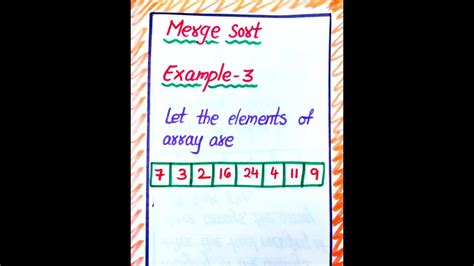 Merge Sort
Example-3
Let the elements of
array are
7 3 2 16 24 4 11 9